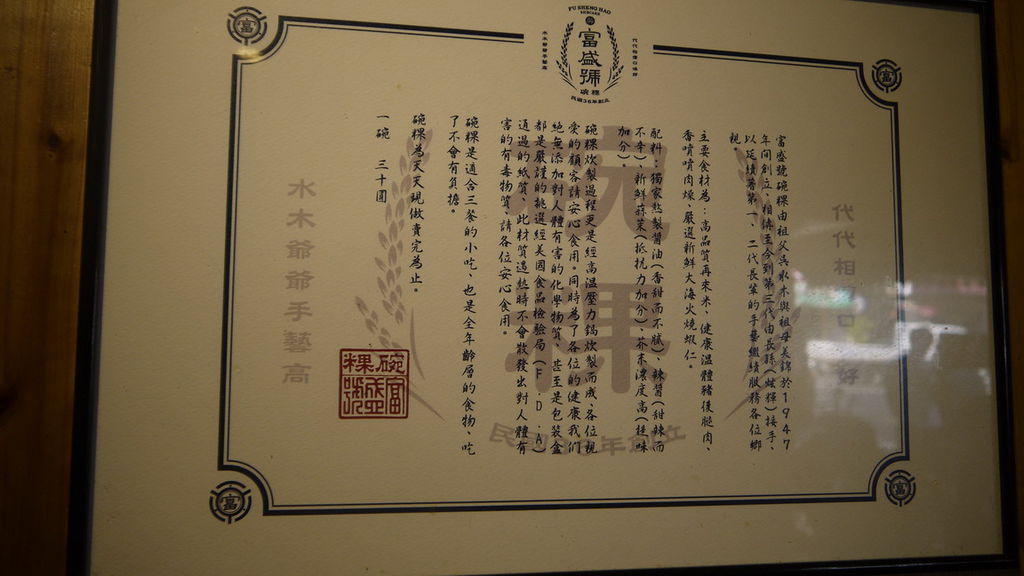 FU SHENG HAO
富盛號
碗粿
民國36年創立
水木爺爺手藝高
代代相傳口味好
富盛號碗粿由祖父吳水木與祖母美錦於1947
年間創立、相傳至今到第三代由長孫(炫輝)接手、
以延續著第一、二代長輩的手藝繼續服務各位鄉
親。
主要食材為:高品質再來米、健康溫體豬後腿肉、
香噴噴肉燥、嚴選新鮮大海火燒蝦仁。
配料:獨家熬製醬油(香甜而不膩)辣醬(甜辣而
不辛)新鮮蒜菜(抵抗力加分)、芥末濃度高(提味
加分)。
碗粿炊製過程更是經高溫壓力鍋炊製而成、各位親
愛的顧客請安心食用。同時為了各位的健康我們
絕無添加對人體有害的化學物質、甚至是包裝盒
都是嚴謹的挑選經美國食品檢驗局(F.D.A)
通過的紙質、此材質遇熱時不會散發出對人體有
害的有毒物質、請各位安心食用。
碗粿是適合三餐的小吃、也是全年齡層的食物、吃
了不會有負擔。
碗粿為天天現做賣完為止。
一碗 三十圓
代代相 口 好
水木爺爺手藝高
碗粿
民國36年創立
富盛號碗粿
富
富
富
富